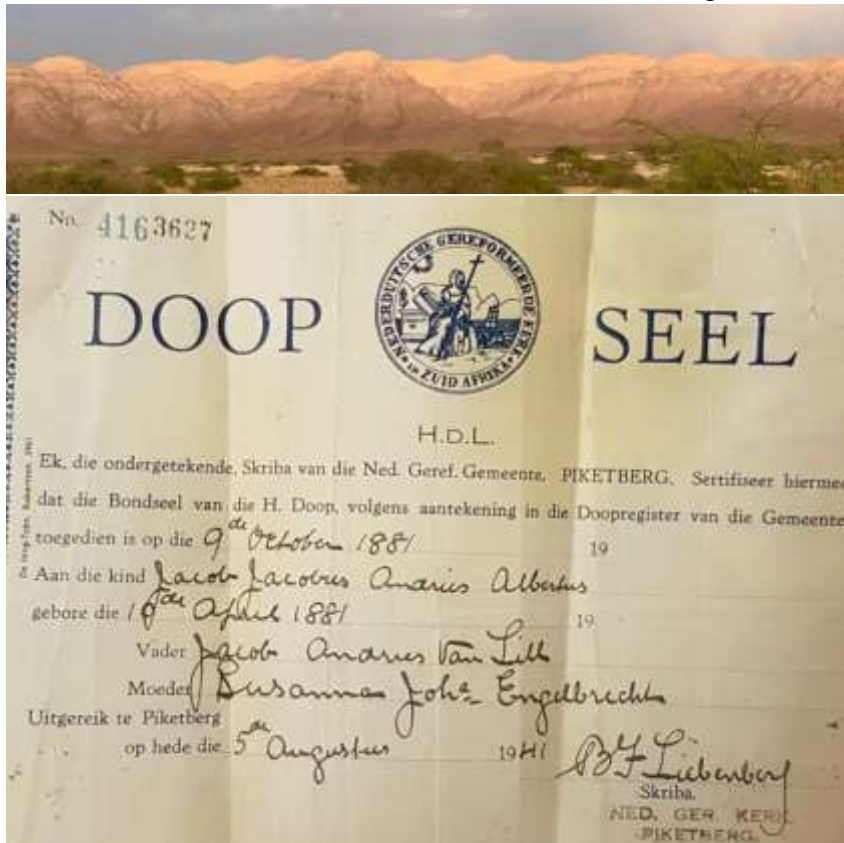 No. 4163627
NEDERDUITSCHE GEREFORMEERDE KERK
IN ZUID AFRIKA
DOOP SEEL
H.D.L.
Ek, die ondergetekende, Skriba van die Ned. Geref. Gemeente, PIKETBERG, Sertifiseer hiermee
dat die Bondseel van die H. Doop, volgens aantekening in die Doopregister van die Gemeente
toegedien is op die 9de October 1881 19
Aan die kind Jacob Jacobus Andries Albertus
gebore die de April 1881 19
Vader Jacob Andries Van Lill
Moeder Susanna Joha Engelbrecht
Uitgereik te Piketberg
op hede die 5de Augustus 1941
B F Liebenberg
Skriba.
NED. GER. KERK
PIKETBERG.